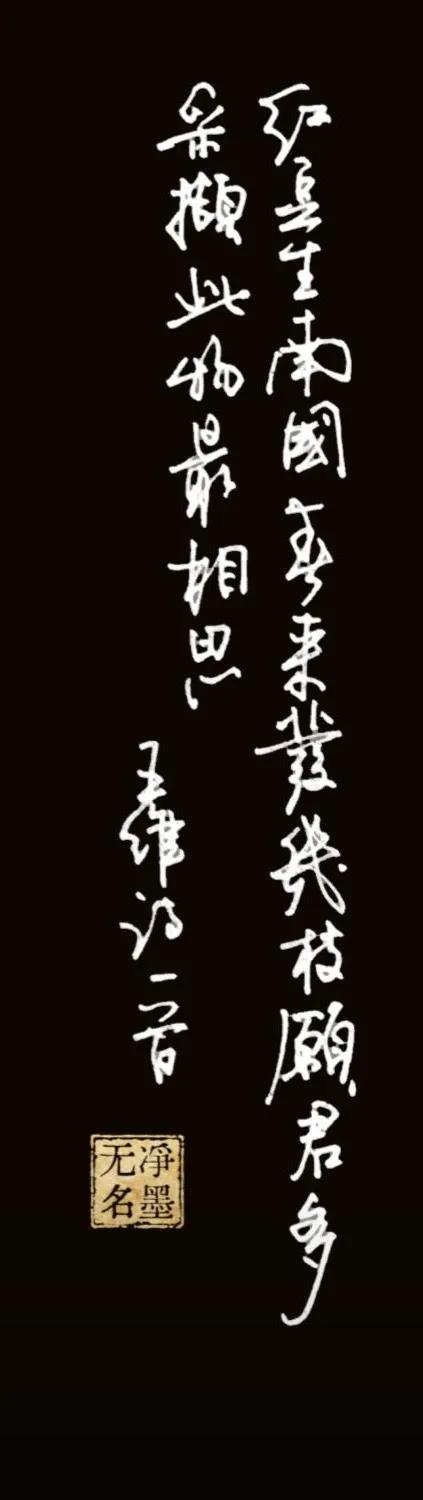 红豆生南國春来發幾枝願君多
采擷此物最相思
王維诗一首
净墨
无名